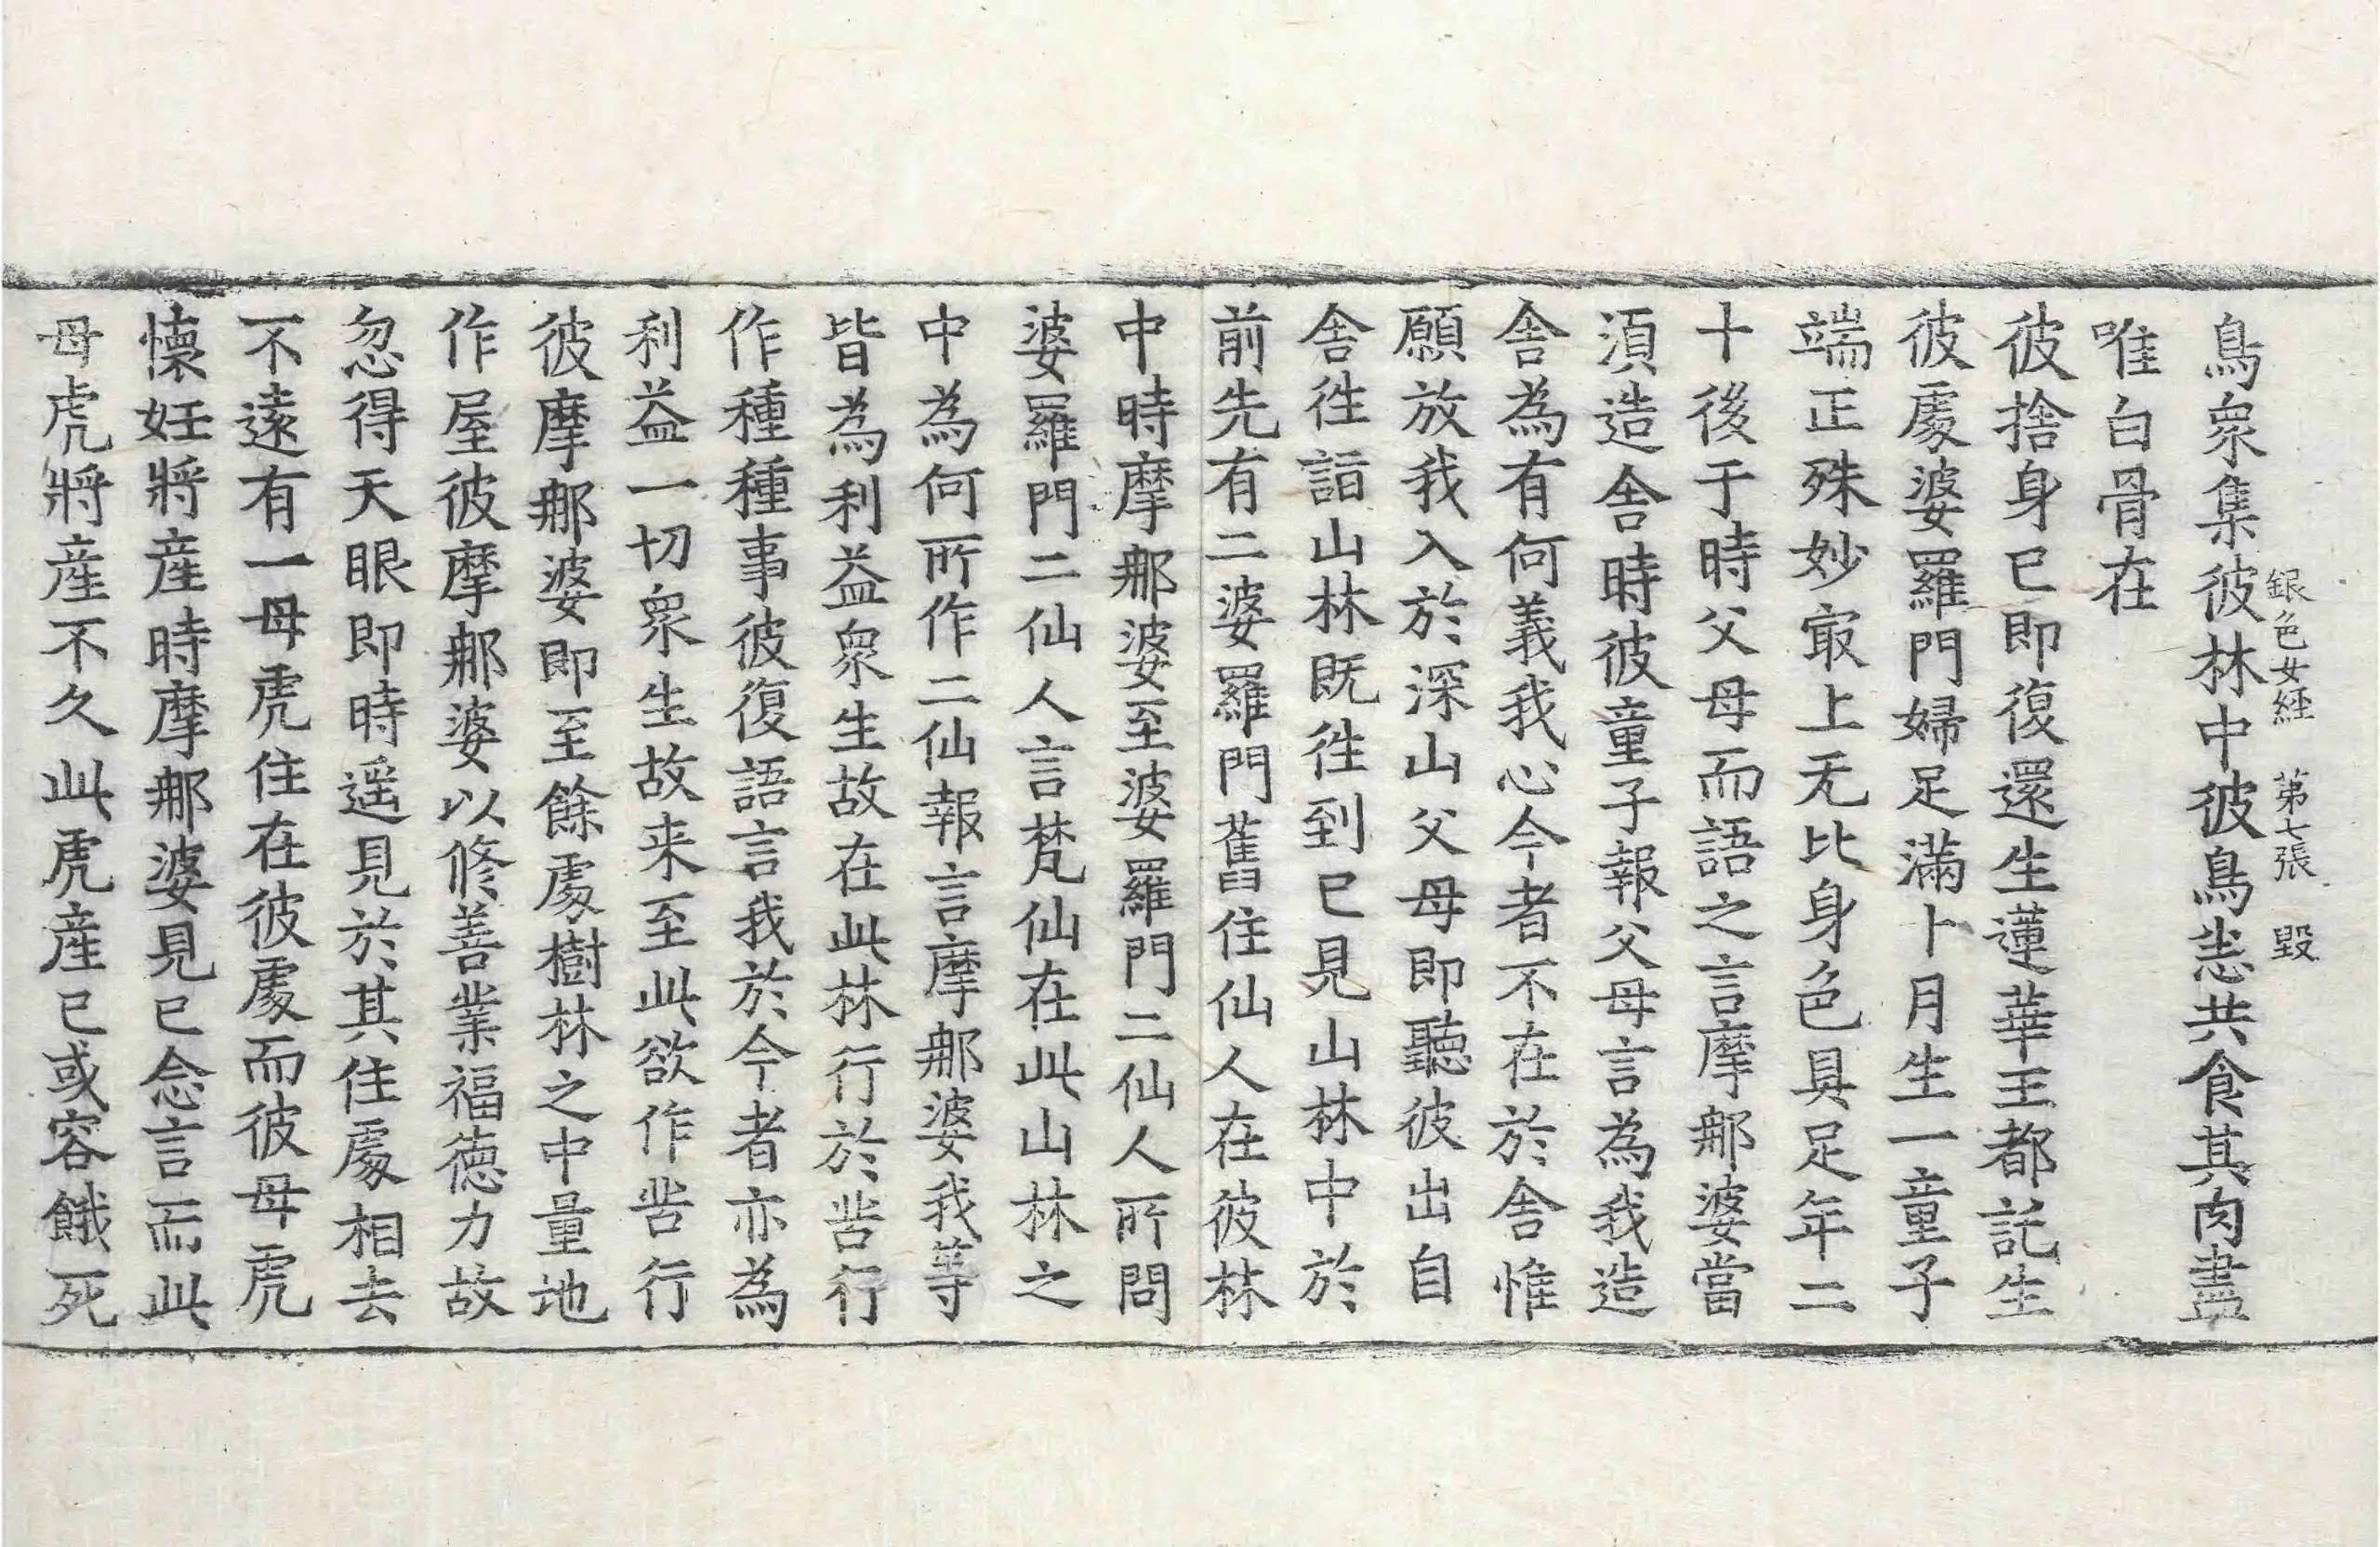 銀色女經　第七張　毀
鳥衆集彼林中彼鳥悉共食其肉盡
唯白骨在
彼捨身已即復還生蓮華王都託生
彼處婆羅門婦足滿十月生一童子
端正殊妙㝡上无比身色具足年二
十後于時父母而語之言摩那婆當
須造舎時彼童子報父母言為我造
舎為有何義我心今者不在於舎惟
願放我入於深山父母即聽彼出自
舎徃詣山林既徃到已見山林中於
前先有二婆羅門舊住仙人在彼林
中時摩那婆至婆羅門二仙人所問
婆羅門二仙人言梵仙在此山林之
中為何所作二仙報言摩那婆我等
皆為利益衆生故在此林行於苦行
作種種事彼復語言我於今者亦為
利益一切衆生故来至此欲作苦行
彼摩那婆即至餘處樹林之中量地
作屋彼摩那婆以修善業福德力故
忽得天眼即時遥見於其住處相去
不遠有一母虎住在彼處而彼母虎
懷妊將産時摩那婆見已念言而此
母虎將産不久此虎産已或容餓死